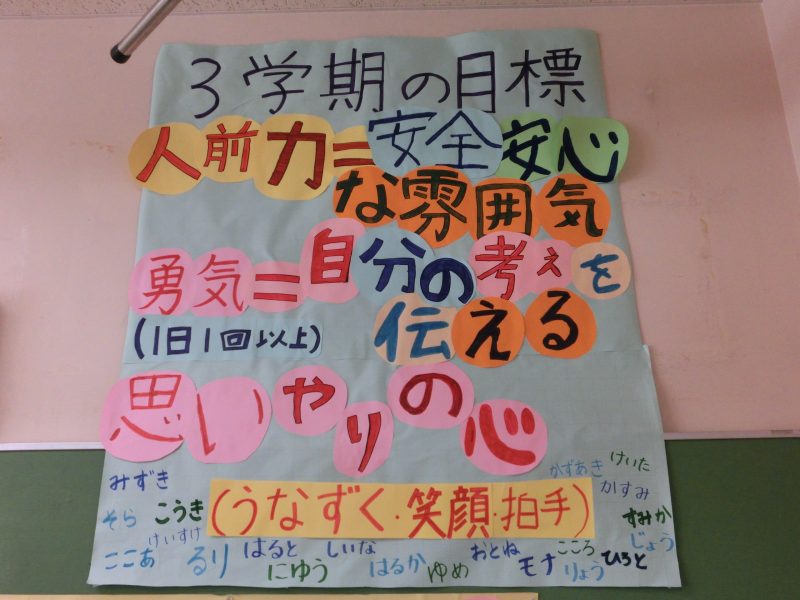 3学期の目標
人前力=安全安心
な雰囲気
勇気=自分の考えを
(1日1回以上) 伝える
思いやりの心
(うなずく·笑顔·拍手)
みずき かずあき けいた
そら こうき かすみ すみか
けいすけ じょう
ここあ るり はると しいな おとね こころ
にゆう はるか ゆめ モナ りょう ひろと